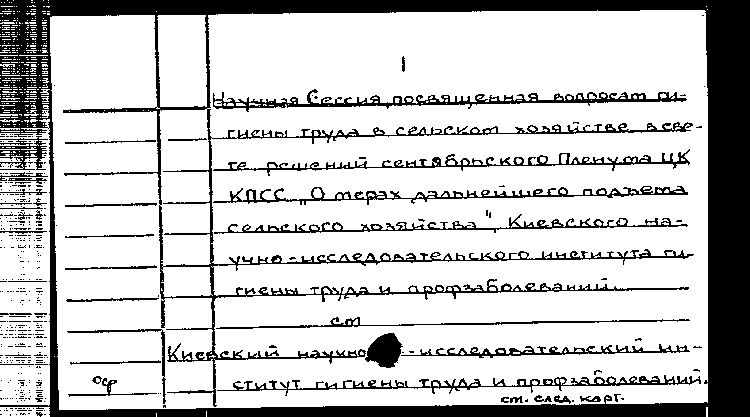 1
Научная Сессия, посвященная вопросам ги-
гиены труда в сельском хозяйстве в све-
те решений сентябрьского Пленума ЦК
КПСС „О мерах дальнейшего подъема
сельского хозяйства", Киевского на-
учно-исследовательского института ги-
гиены труда и профзаболеваний.
см
Киевский научно-исследовательский ин-
оср ститут гигиены труда и профзаболеваний.
см. след. карт.